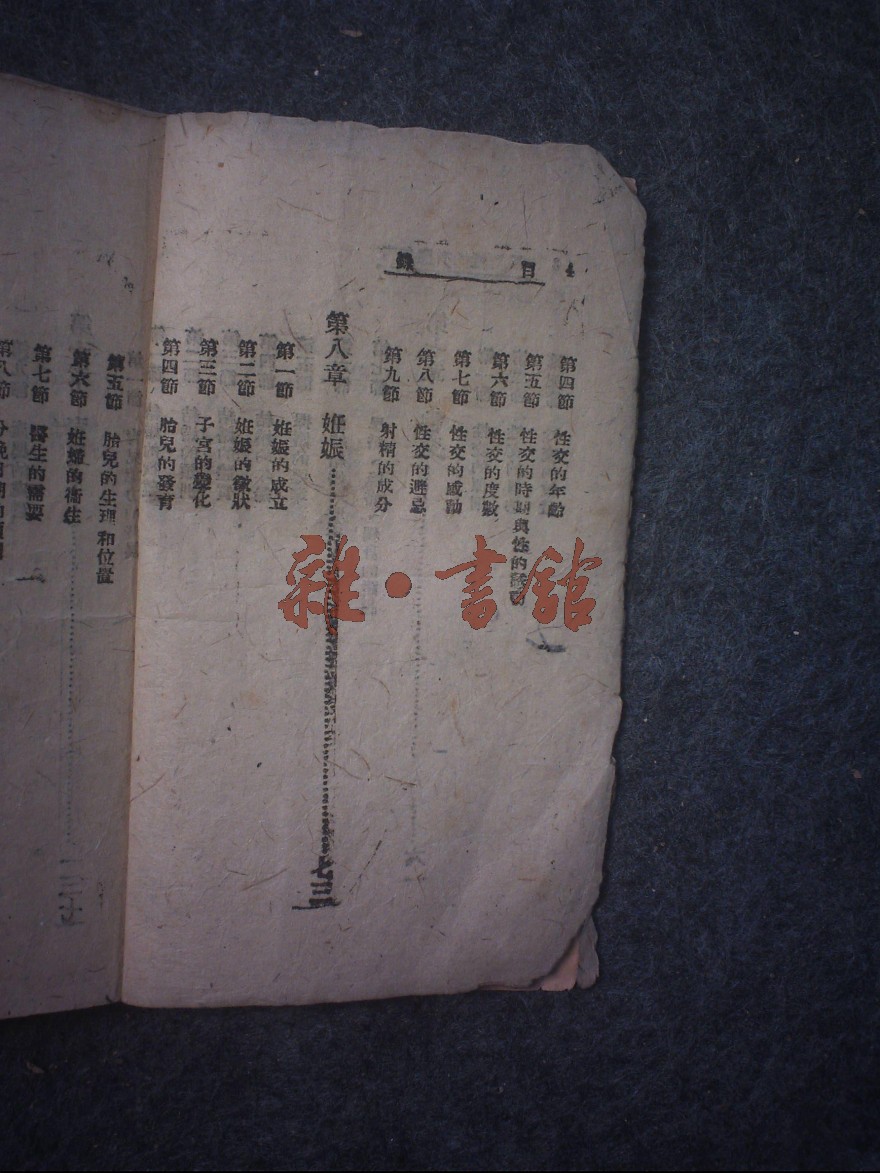 目錄
第四節 性交的年齡
第五節 性交的時期與性的發動
第六節 性交的度數
第七節 性交的感動
第八節 性交的避忌
第九節 射精的成分
第八章 妊娠
第一節 妊娠的成立
第二節 妊娠的徵狀
第三節 子宮的變化
第四節 胎兒的發育
第五節 胎兒的生理和位置
第六節 妊娠的衛生
第七節 醫生的需要
第八節
雜·書館